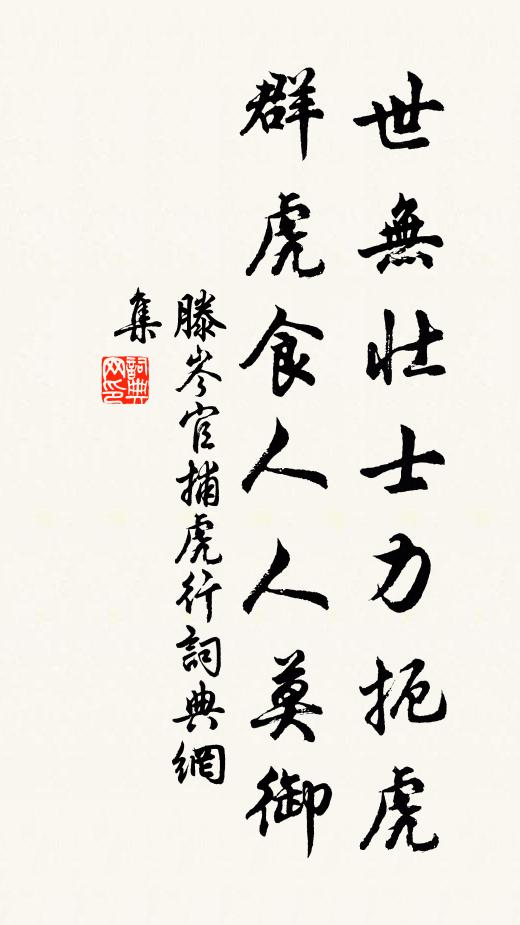 世無壯士力扼虎
群虎食人人莫御
滕岑官捕虎行詞典網
集
詞典
网印